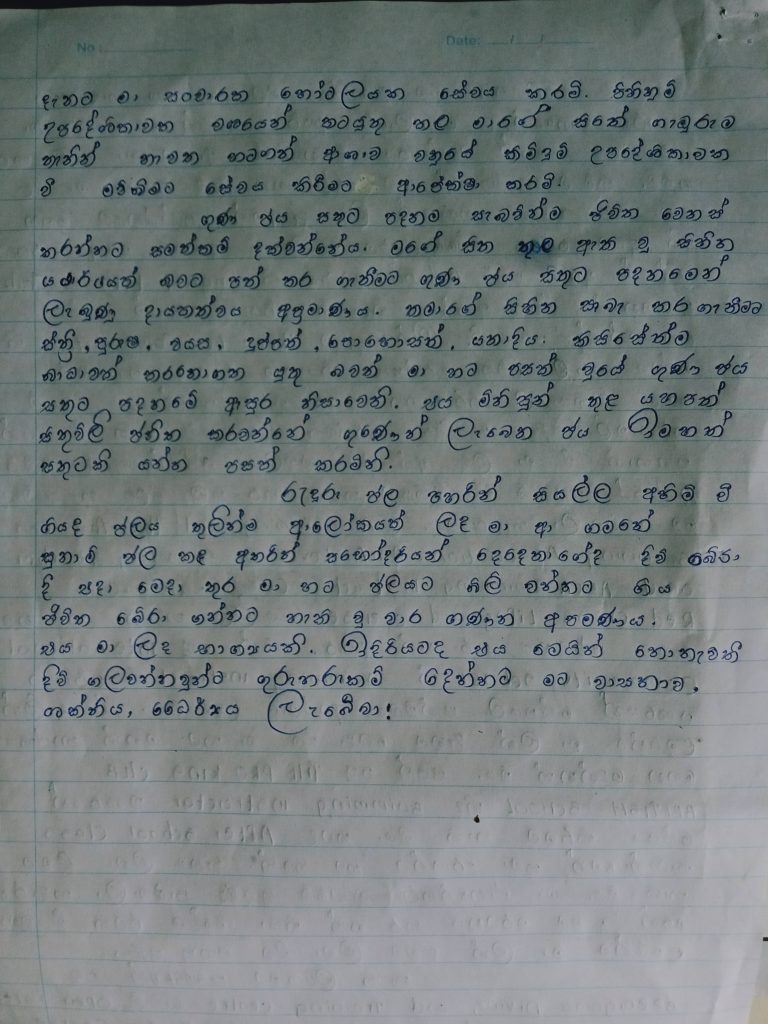 No :
Date: / /
දැනට මා සංචාරක හෝටලයක සේවය කරමි. පිහිනුම්
උපදේශිකාවක වශයෙන් කටයුතු කල මාගේ සිතේ ගැඹුරුම
තැනින් භාවිත ආශාව වතුරේ කිමිදුම් උපදේශිකාවක
වී මව්බිමට සේවය කිරීමට අපේක්ෂා කරමි.
ගුණ ජය සතුට පදනම සැබවින්ම ජීවිත වෙනස්
කරන්නට සමත්කම් දක්වන්නේය. මගේ සිත තුල ඇති වූ සිහින
යථාර්ථයක් බවට පත් කර ගැනීමට ගුණ ජය සතුට පදනමෙන්
ලැබුණු දායකත්වය අප්‍රමාණය. තමාගේ සිහින සැබෑ කර ගැනීමට
ස්ත්‍රී, පුරුෂ, වයස, දුප්පත්, පොහොසත්, යනාදිය. කිසිසේත්ම
බාධාවක් කරනොගත යුතු බවත් මා හට පසක් වූයේ ගුණ ජය
සතුට පදනමේ ඇසුර නිසාවෙනි. එය මිනිසුන් තුළ යහපත්
සිතුවිලි ජනිත කරවන්නේ ගුණෙන් ලැබෙන ජය ඉමහත්
සතුටකි යන්න පසක් කරමිනි.
රුදුරු ජල පහරින් සියල්ල අහිමි වී
ගියද ජලය තුලින්ම ආලෝකයක් ලද මා ආ ගමනේ
සුනාමි ජල කඳ අතරින් සහෝදරියන් දෙදෙනාගේද දිවි බේරා
දී එදා මෙදා තුර මා හට ජලයට බිලි වන්නට ගිය
ජීවිත බේරා ගන්නට හැකි වූ වාර ගණන අපමණය.
එය මා ලද භාග්‍යයකි. ඉදිරියටද එය මෙයින් නොනැවතී
දිවි ගලවන්නවුන්ට ගුරුහරුකම් දෙන්නට මට වාසනාව,
ශක්තිය, ධෛර්යය ලැබේවා!